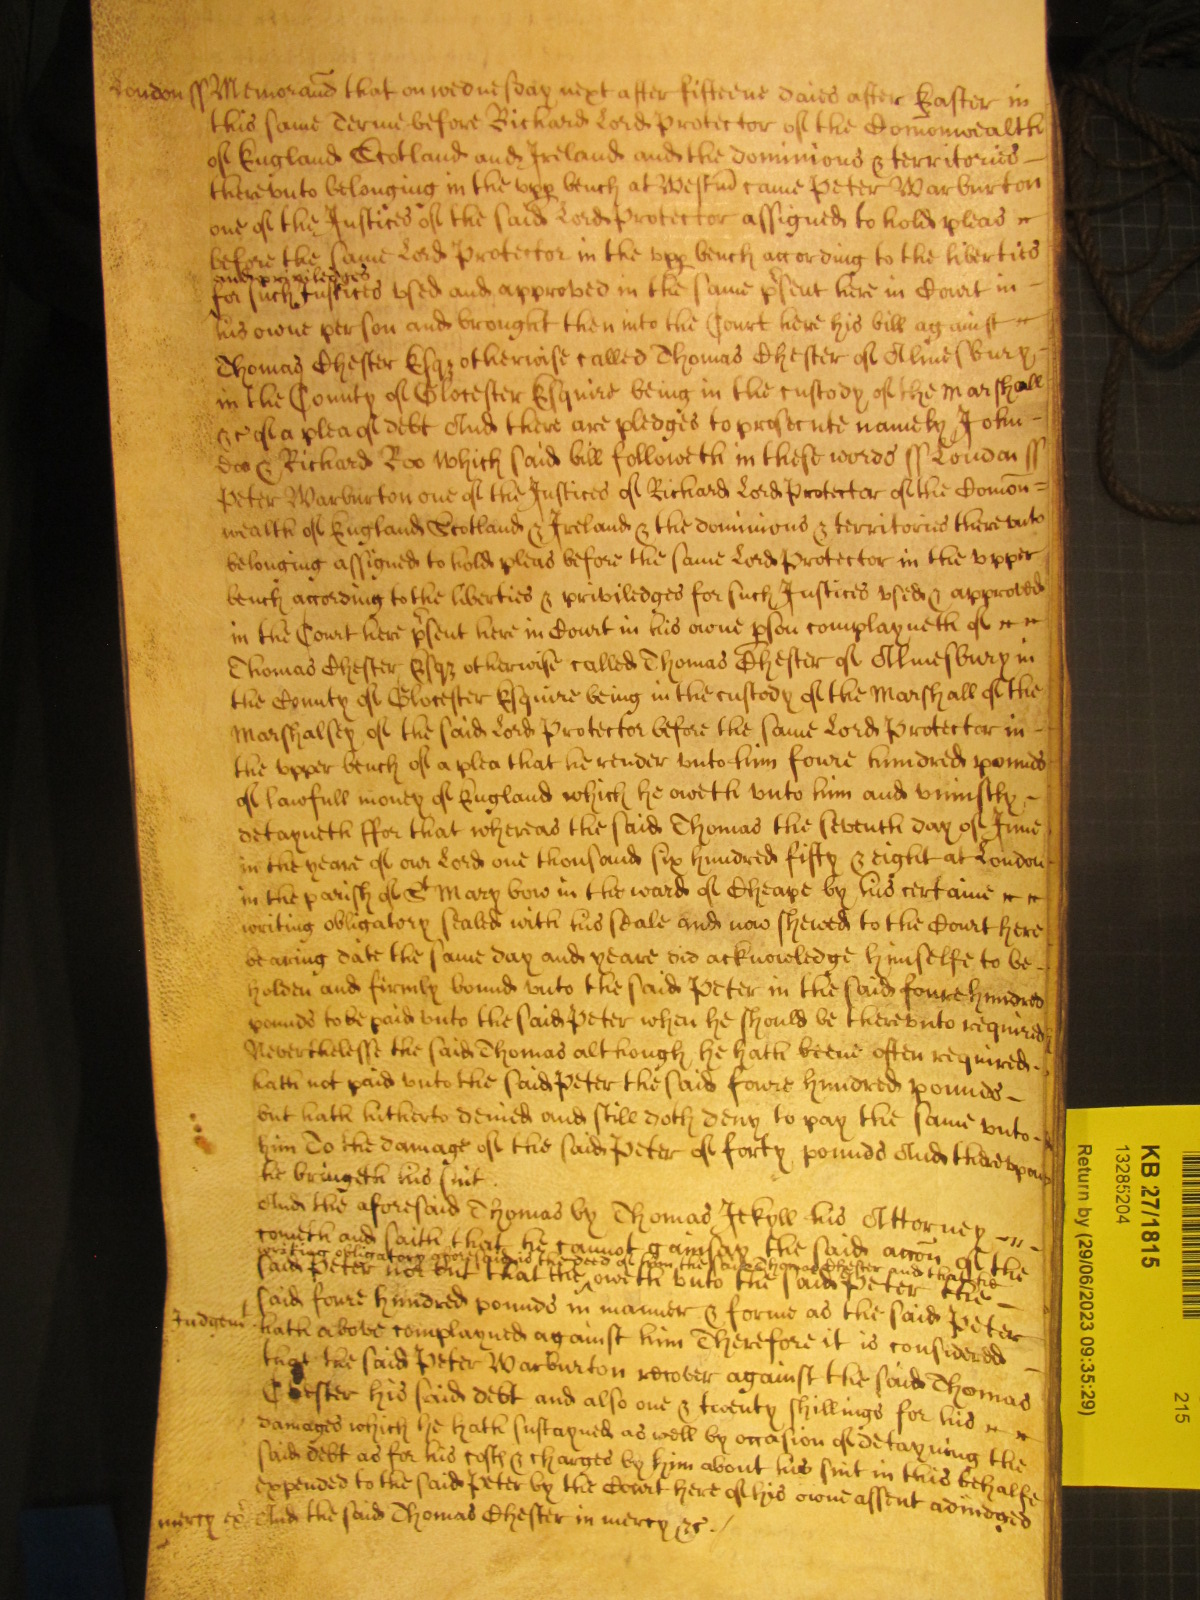 London ss Memorand that on wednesday next after fifteene daies after Easter in
this same Terme before Richard Lord Protector of the Comonwealth
of England Scotland and Ireland and the dominions & territories
therevnto belonging in the vpp bench at Westm came Peter Warburton
one of the Justices of the said Lord Protector assigned to hold pleas
before the same Lord Protector in the vpp bench according to the liberties
and priviledges
for such Justices vsed and approved in the same psent here in Court in
his owne person and brought then into the Court here his bill against
Thomas Chester Esqz otherwise called Thomas Chester of Almesbury
in the County of Glocester Esquire being in the custody of the Marshall
&c of a plea of debt And there are pledges to prosecute namely John
Doo & Richard Roo Which said bill followeth in these words ss London ss
Peter Warburton one of the Justices of Richard Lord Protector of the Comon=
wealth of England Scotland & Ireland & the dominions & territories therevnto
belonging assigned to hold pleas before the same Lord Protector in the vpper
bench according to the liberties & priviledges for such Justices vsed & approved
in the Court here psent here in Court in his owne pson complayneth of
Thomas Chester Esqz otherwise called Thomas Chester of Almesbury in
the County of Glocester Esquire being in the custody of the Marshall of the
Marshalsey of the said Lord Protector before the same Lord Protector in
the vpper bench of a plea that he render vnto him foure hundred pounds
of lawfull money of England which he oweth vnto him and vniustly
detayneth ffor that whereas the said Thomas the seventh day of June
in the yeare of our Lord one thousand six hundred fifty & eight at London
in the parish of St Mary bow in the ward of Cheape by his certaine
writing obligatory sealed with his seale and now shewed to the Court here
bearing date the same day and yeare did acknowledge himselfe to be
holden and firmly bound vnto the said Peter in the said foure hundred
pounds to be paid vnto the said Peter when he should be therevnto required
Neverthelesse the said Thomas although he hath beene often required
hath not paid vnto the said Peter the said foure hundred pounds
but hath hitherto denied and still doth deny to pay the same vnto
him To the damage of the said Peter of forty pounds And therevpon
he bringeth his suit.
And the aforesaid Thomas by Thomas Jekyll his Attorney
cometh and saith that he cannot gainsay the said accon of the
writing obligatory aforesaid is the deed of him the said Thomas Chester and that he
said Peter nor but that the oweth vnto the said Peter the
said foure hundred pounds in manner & forme as the said Peter
Judgemt
hath above complayned against him Therefore it is considered
that the said Peter Warburton recover against the said Thomas
Chester his said debt and also one & twenty shillings for his
damages which he hath sustayned as well by occasion of detayning the
said debt as for his costs & charges by him about his suit in this behalfe
expended to the said Peter by the Court here of his owne assent adiudged
mercy
And the said Thomas Chester in mercy &c.
KB 27/1815
13285204
Return by (29/06/2023 09:35:29)
215